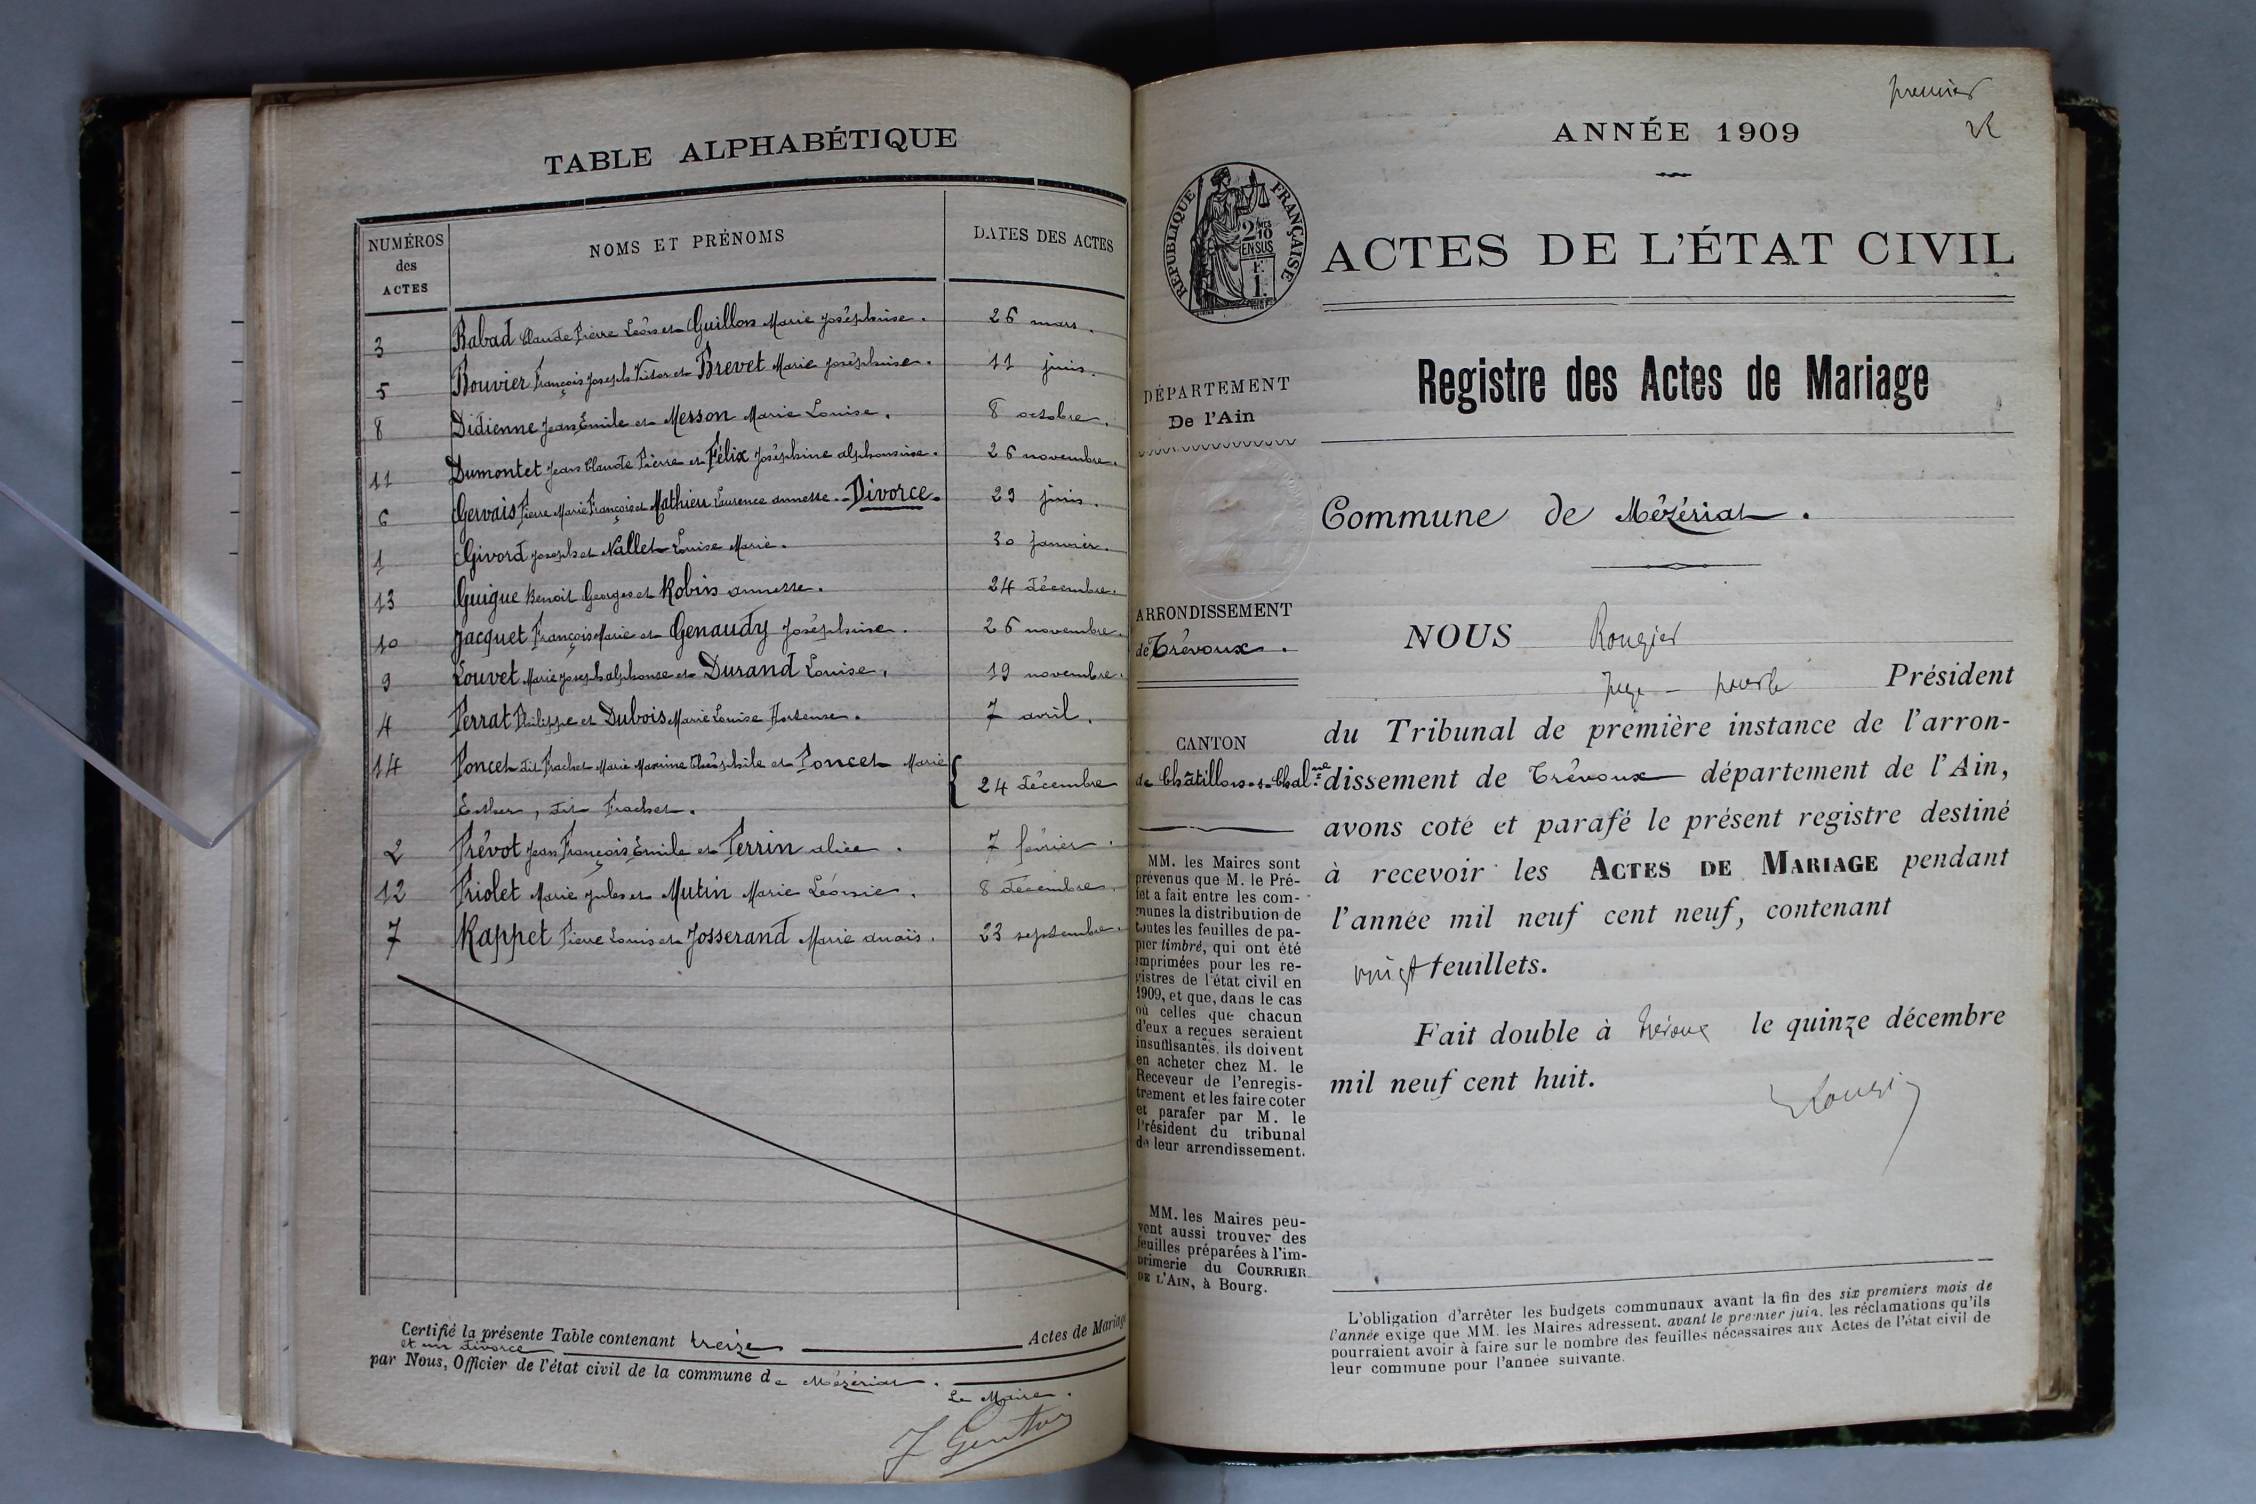 TABLE ALPHABÉTIQUE
NUMÉROS des ACTES
NOMS ET PRÉNOMS
DATES DES ACTES
3 Babad Claude Pierre Léon et Guillon Marie Joséphine. 26 mars.
5 Bouvier François Joseph Victor et Brevet Marie Joséphine. 11 juin.
8 Didienne Jean Emile et Messon Marie Louise. 8 octobre.
11 Dumontet Jean Claude Pierre et Félix Joséphine alphonsine. 26 novembre.
6 Gervais Pierre Marie François et Mathieu Laurence annette. - Divorce. 29 juin.
1 Givord Joseph et Nallet Louise Marie. 30 janvier.
13 Guigue Benoit Georges et Robin annette. 24 décembre.
10 Jacquet François Marie et Genaudy Joséphine. 26 novembre.
9 Louvet Marie Joseph alphonse et Durand Louise. 19 novembre.
4 Perrat Philippe et Dubois Marie Louise Hortense. 7 avril.
14 Poncet dit Frachet Marie Maxime Théophile et Poncet Marie
Esther, dit Frachet. 24 décembre
2 Prévot Jean François Emile et Perrin alice. 7 février.
12 Priolet Marie Jules et Mutin Marie Léonie. 8 décembre.
7 Rappet Pierre Louis et Josserand Marie anaïs. 23 septembre.
Certifié la présente Table contenant treize Actes de Mariage
et un divorce
par Nous, Officier de l'état civil de la commune de Mézériat.
Le Maire.
premier
ANNÉE 1909
RÉPUBLIQUE FRANÇAISE
2/10 MES
EN SUS
F.
1.
ACTES DE L'ÉTAT CIVIL
Registre des Actes de Mariage
DÉPARTEMENT
De l'Ain
Commune de Mézériat.
ARRONDISSEMENT
de Trévoux.
CANTON
de Châtillon-s-Chal.ne
MM. les Maires sont
prévenus que M. le Pré-
fet a fait entre les com-
munes la distribution de
toutes les feuilles de pa-
pier timbré, qui ont été
imprimées pour les re-
gistres de l'état civil en
1909, et que, dans le cas
où celles que chacun
d'eux a reçues seraient
insuffisantes, ils doivent
en acheter chez M. le
Receveur de l'enregis-
trement et les faire coter
et parafer par M. le
Président du tribunal
de leur arrondissement.
MM. les Maires peu-
vent aussi trouver des
feuilles préparées à l'im-
primerie du COURRIER
DE L'AIN, à Bourg.
NOUS Rougier
Juge - Président
du Tribunal de première instance de l'arron-
dissement de Trévoux département de l'Ain,
avons coté et parafé le présent registre destiné
à recevoir les ACTES DE MARIAGE pendant
l'année mil neuf cent neuf, contenant
vingt feuillets.
Fait double à Trévoux le quinze décembre
mil neuf cent huit.
L'obligation d'arrêter les budgets communaux avant la fin des six premiers mois de
l'année exige que MM. les Maires adressent, avant le premier juin, les réclamations qu'ils
pourraient avoir à faire sur le nombre des feuilles nécessaires aux Actes de l'état civil de
leur commune pour l'année suivante.